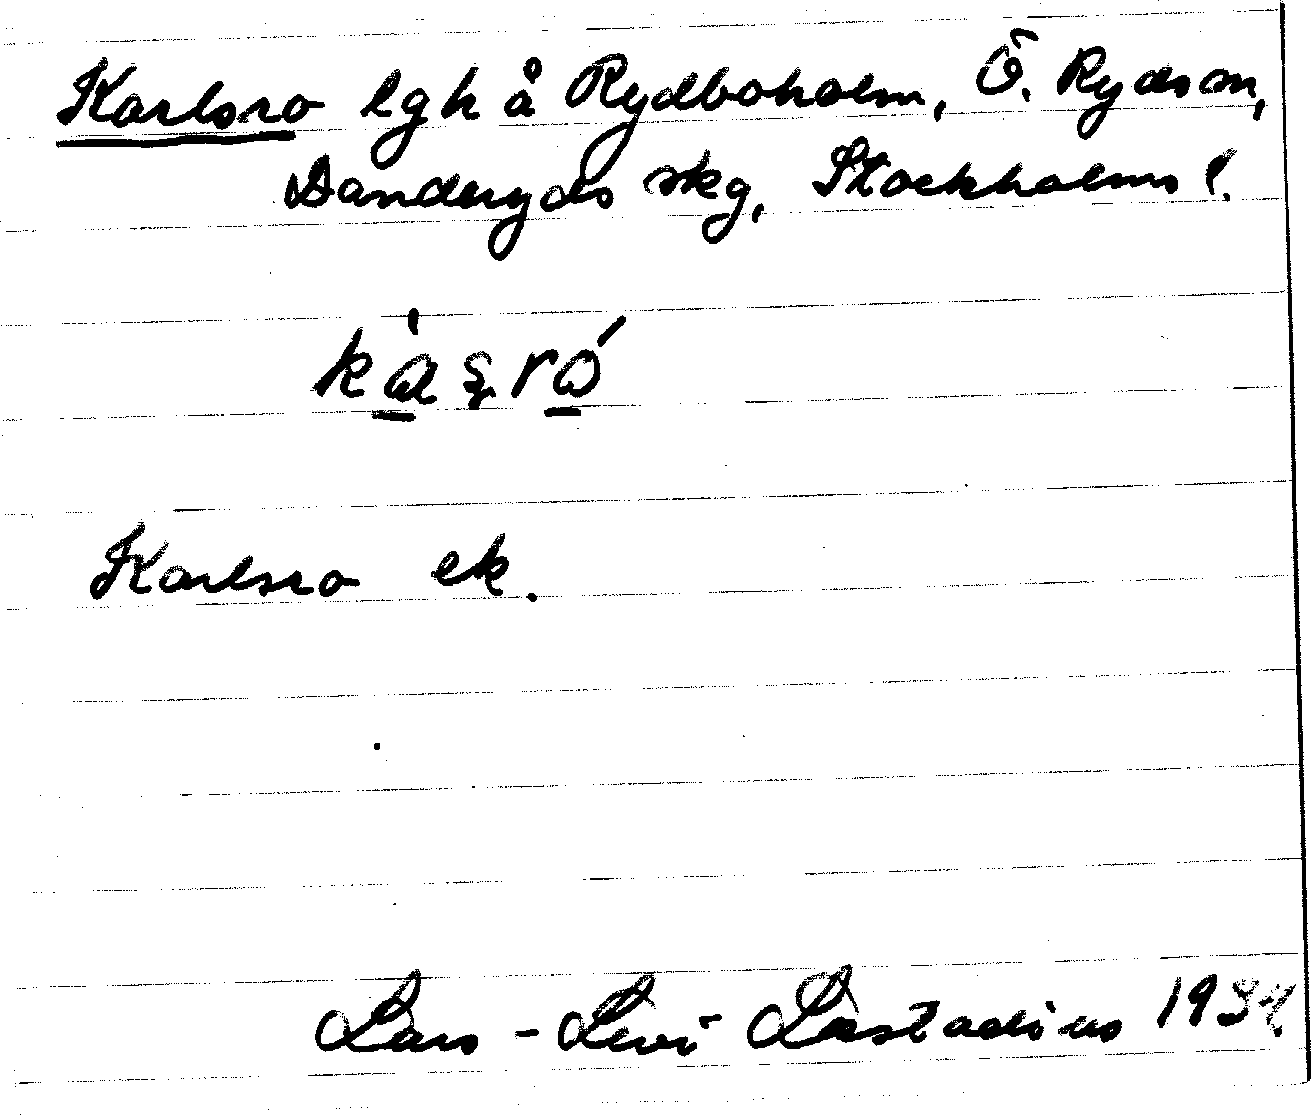 Karlsro lgh å Rydboholm, Ö. Ryds sn,
Danderyds skg, Stockholms l.
kàʂró
Karlsro ek.
Lars-Levi Læstadius 1934.